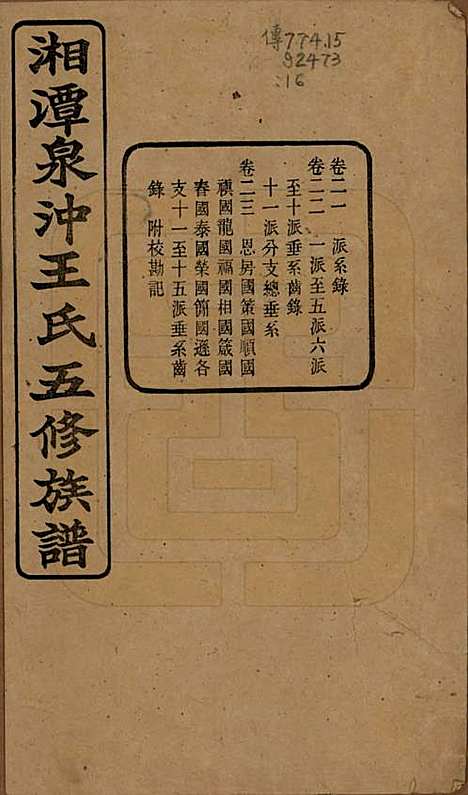 傳774.15
92473
:16
湘潭泉沖王氏五修族譜
卷二一　派系錄
卷二二　一派至五派六派
至十派垂系齒錄
十一派分支總垂系
卷二三　恩昇國策國順國
禎國龍國福國相國箴國
春國泰國榮國簡國遜各
支十一至十五派垂系齒
錄　附校勘記